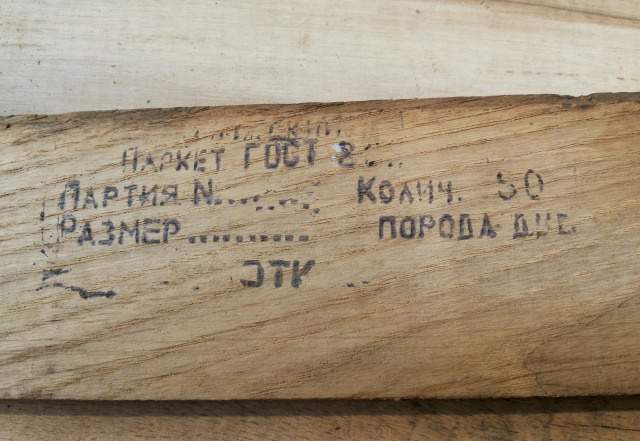 ПАРКЕТ ГОСТ 8
ПАРТИЯ N........ КОЛИЧ. 50
РАЗМЕР .......... ПОРОДА ДУБ.
ОТК